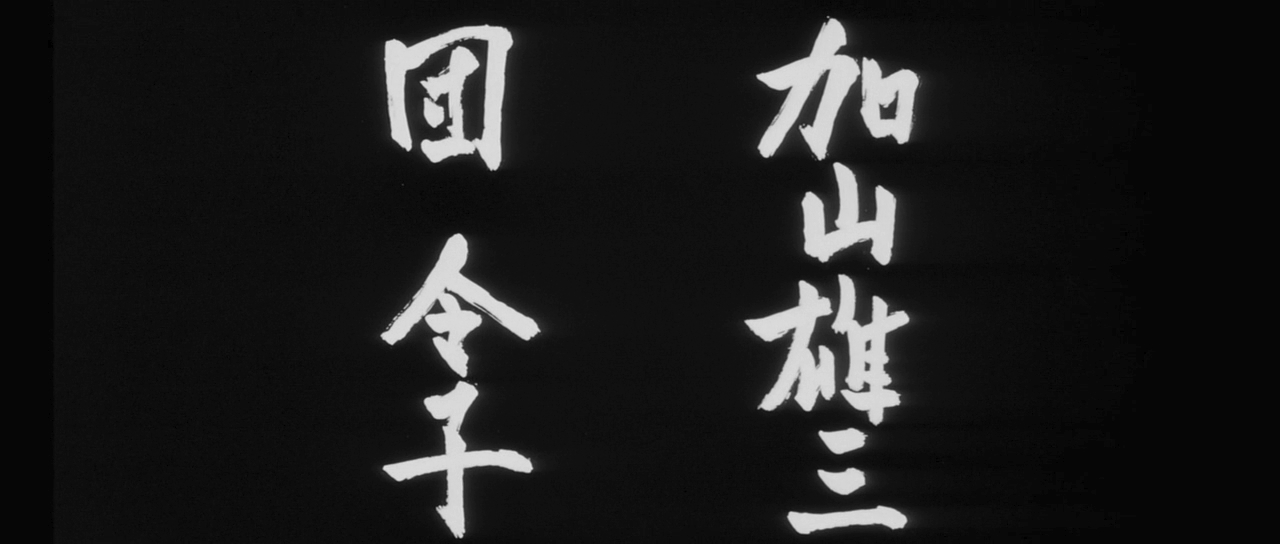 加山雄三
団令子